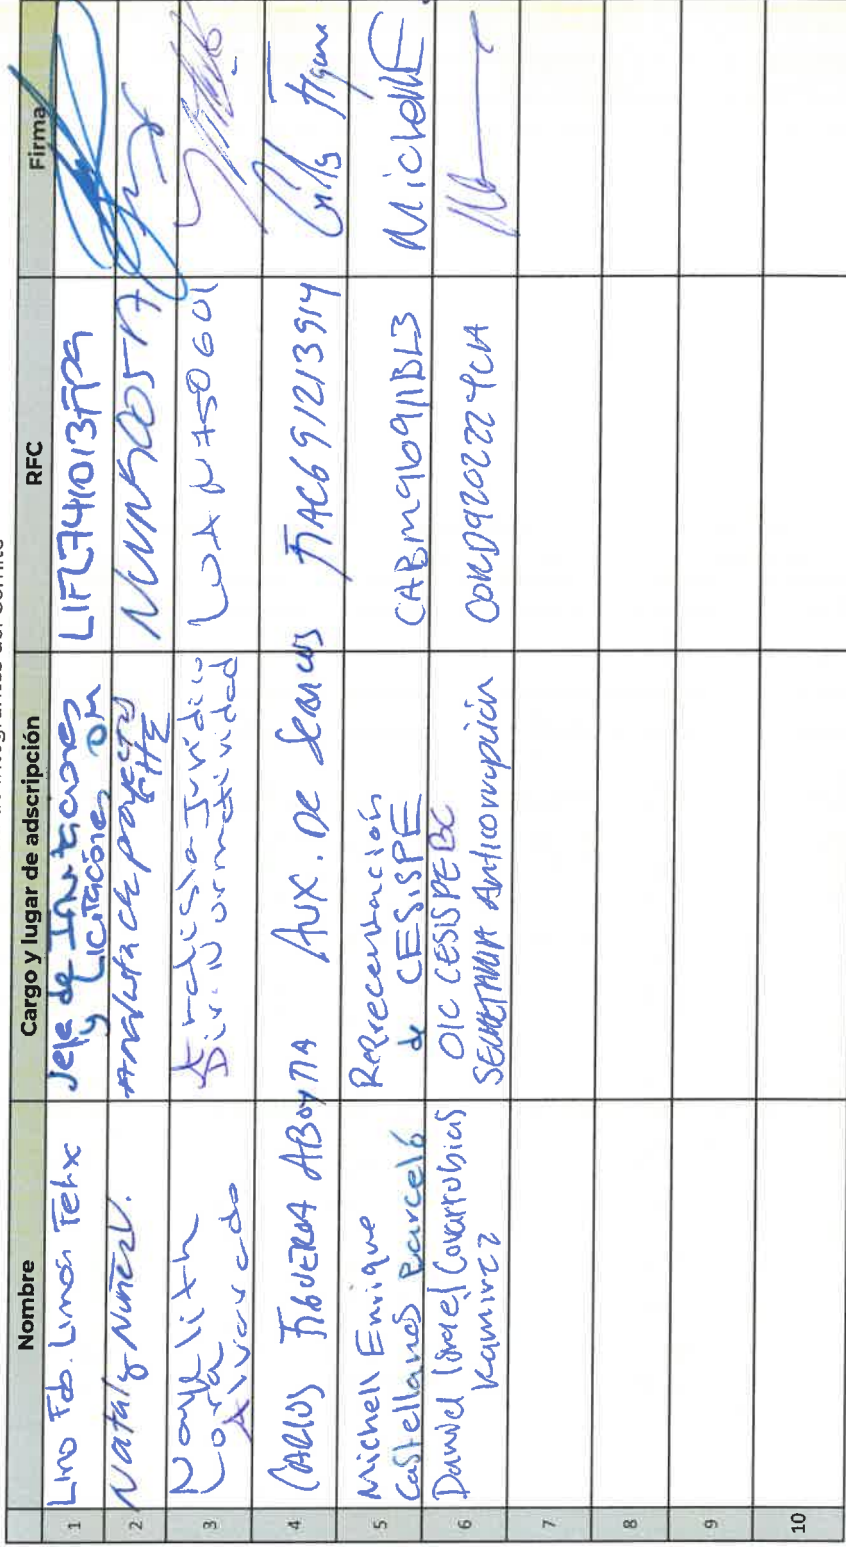 Integrantes del Comité
Nombre Cargo y lugar de adscripción RFC Firma
1 Lino Fab. Limón Felix Jefe de Invitaciones
y Licitaciones OM LIFL741013FP9
2 Nataly Nuñez V. Analista de proyectos
SHE
3 Nayelith
Loria
Alvarado Analista Jurídico
Dir. Normatividad LOAN750601
4 CARLOS FIGUEROA ABOYTIA AUX. DE Servicios FIAC691213914 Carlos Figueroa
5 Michell Enrique
Castellanos Barceló Reprecentación
de CESISPE CABM960911BL3 MichellE.
6 Daniel Ismael Covarrubias
Ramirez OIC CESISPE BC
SECRETARIA Anticorrupción CORD920222
7
8
9
10